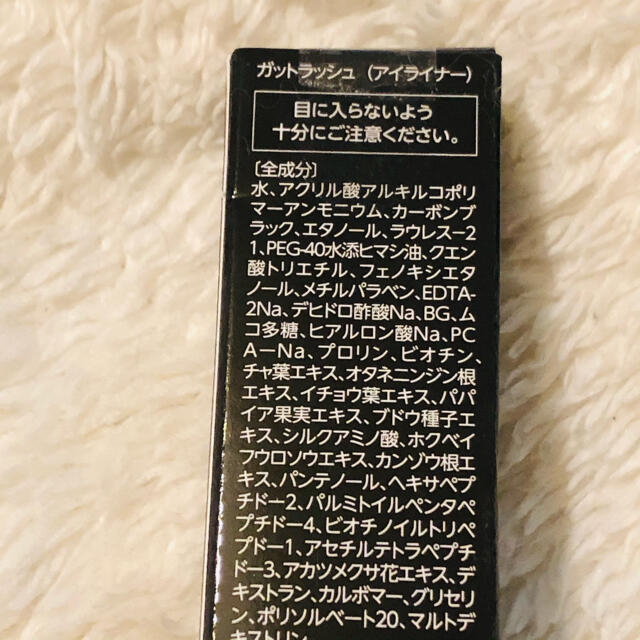 ガットラッシュ（アイライナー）
目に入らないよう
十分にご注意ください。
〔全成分〕
水、アクリル酸アルキルコポリ
マーアンモニウム、カーボンブ
ラック、エタノール、ラウレス−2
1、PEG-40水添ヒマシ油、クエン
酸トリエチル、フェノキシエタ
ノール、メチルパラベン、EDTA-
2Na、デヒドロ酢酸Na、BG、ム
コ多糖、ヒアルロン酸Na、PC
A−Na、プロリン、ビオチン、
チャ葉エキス、オタネニンジン根
エキス、イチョウ葉エキス、パパ
イア果実エキス、ブドウ種子エ
キス、シルクアミノ酸、ホクベイ
フウロソウエキス、カンゾウ根エ
キス、パンテノール、ヘキサペプ
チドー2、パルミトイルペンタペ
プチドー4、ビオチノイルトリペ
プドー1、アセチルテトラペプチ
ドー3、アカツメクサ花エキス、デ
キストラン、カルボマー、グリセリ
ン、ポリソルベート20、マルトデ
キストリン